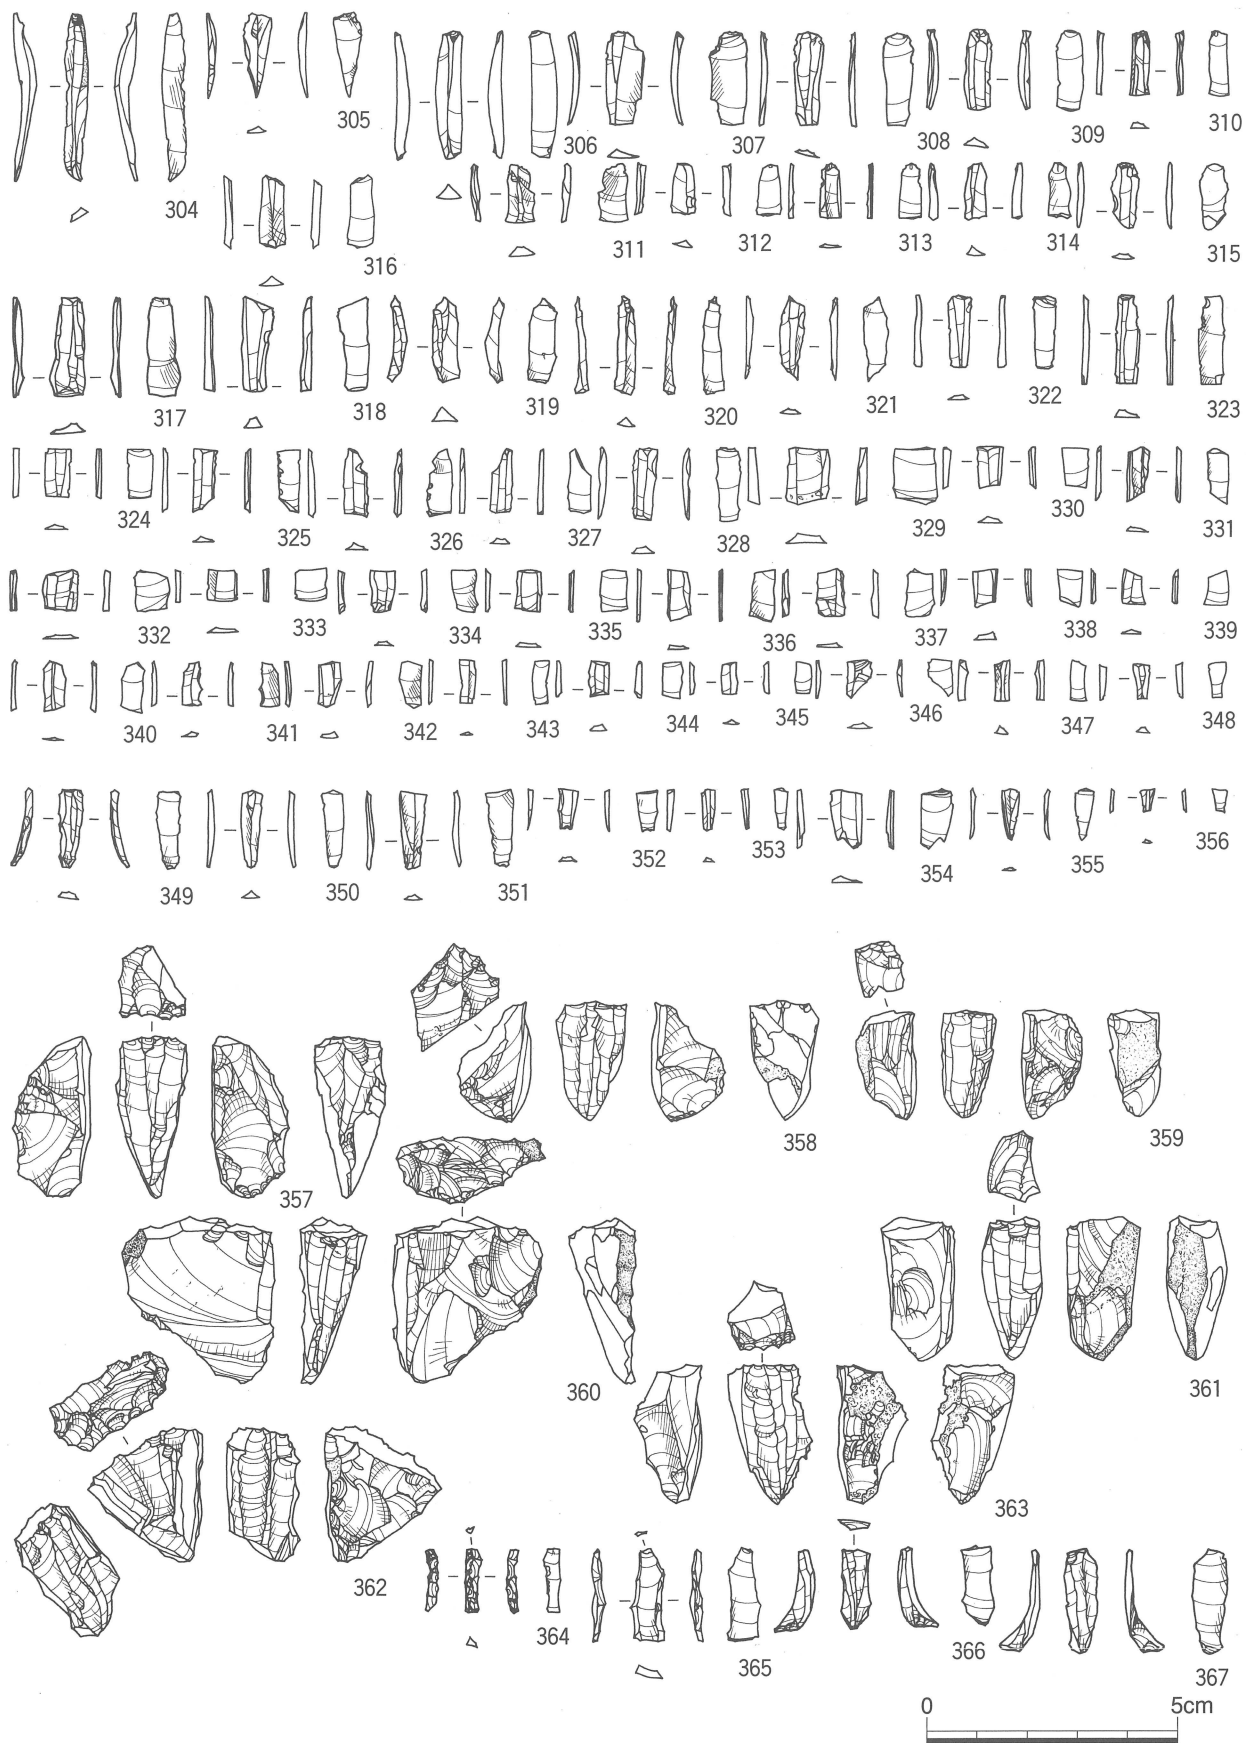 305
306
307
308
309
310
304
311
312
313
314
315
316
317
318
319
320
321
322
323
324
325
326
327
328
329
330
331
332
333
334
335
336
337
338
339
340
341
342
343
344
345
346
347
348
349
350
351
352
353
354
355
356
357
358
359
360
361
362
363
364
365
366
367
0 5cm